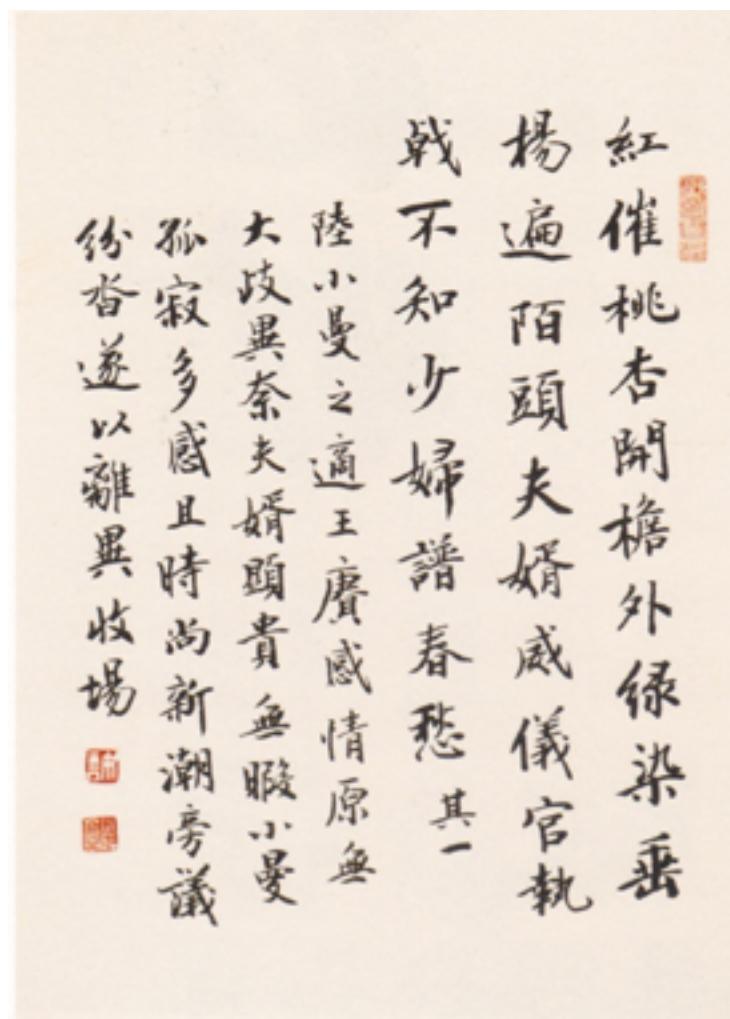 紅催桃杏開檐外緑染垂
楊遍陌頭夫婿威儀官執
戟不知少婦譜春愁 其一
陸小曼之適王賡感情原無
大歧異奈夫婿顯貴無暇小曼
孤寂多感且時尚新潮旁議
紛沓遂以離異收場